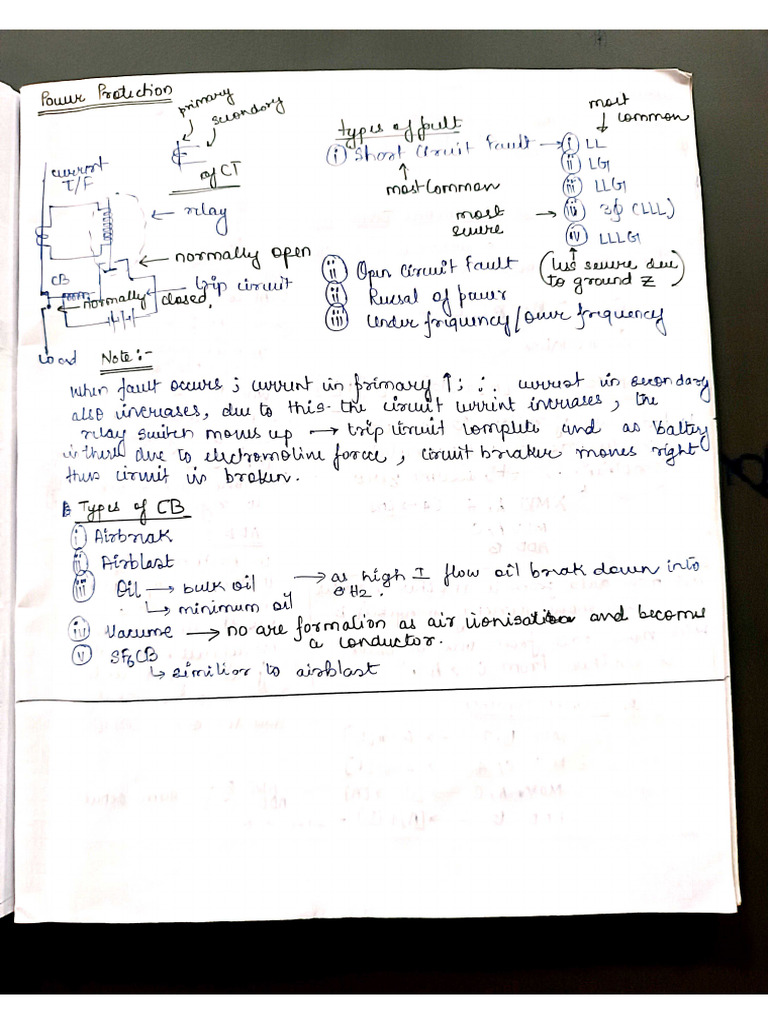 Power Protection
primary
secondary
of CT
current
T/F
relay
normally open
CB
trip circuit
normally closed.
Load
types of fault
most
common
(i) Short Circuit Fault → (i) LL
most common
(ii) LG
(iii) LLG
most
severe
→ (iv) 3ϕ (LLL)
(iv) LLLG
(less severe due
to ground Z)
(ii) Open Circuit Fault
(ii) Reversal of power
(iii) Under frequency/over frequency
Note:-
When fault occurs ; current in primary ↑ ; ∴ current in secondary
also increases, due to this the circuit current increases, the
relay switch moves up → trip circuit complete and as battery
is there due to electromotive force, circuit breaker moves right
thus circuit is broken.
Types of CB
(i) Airbreak
(ii) Airblast
(iii) Oil → bulk oil → as high I flow oil break down into
↳ minimum oil H2.
(iv) Vacume → no arc formation as air ionisation and become
a conductor.
(v) SF6CB
↳ similior to airblast